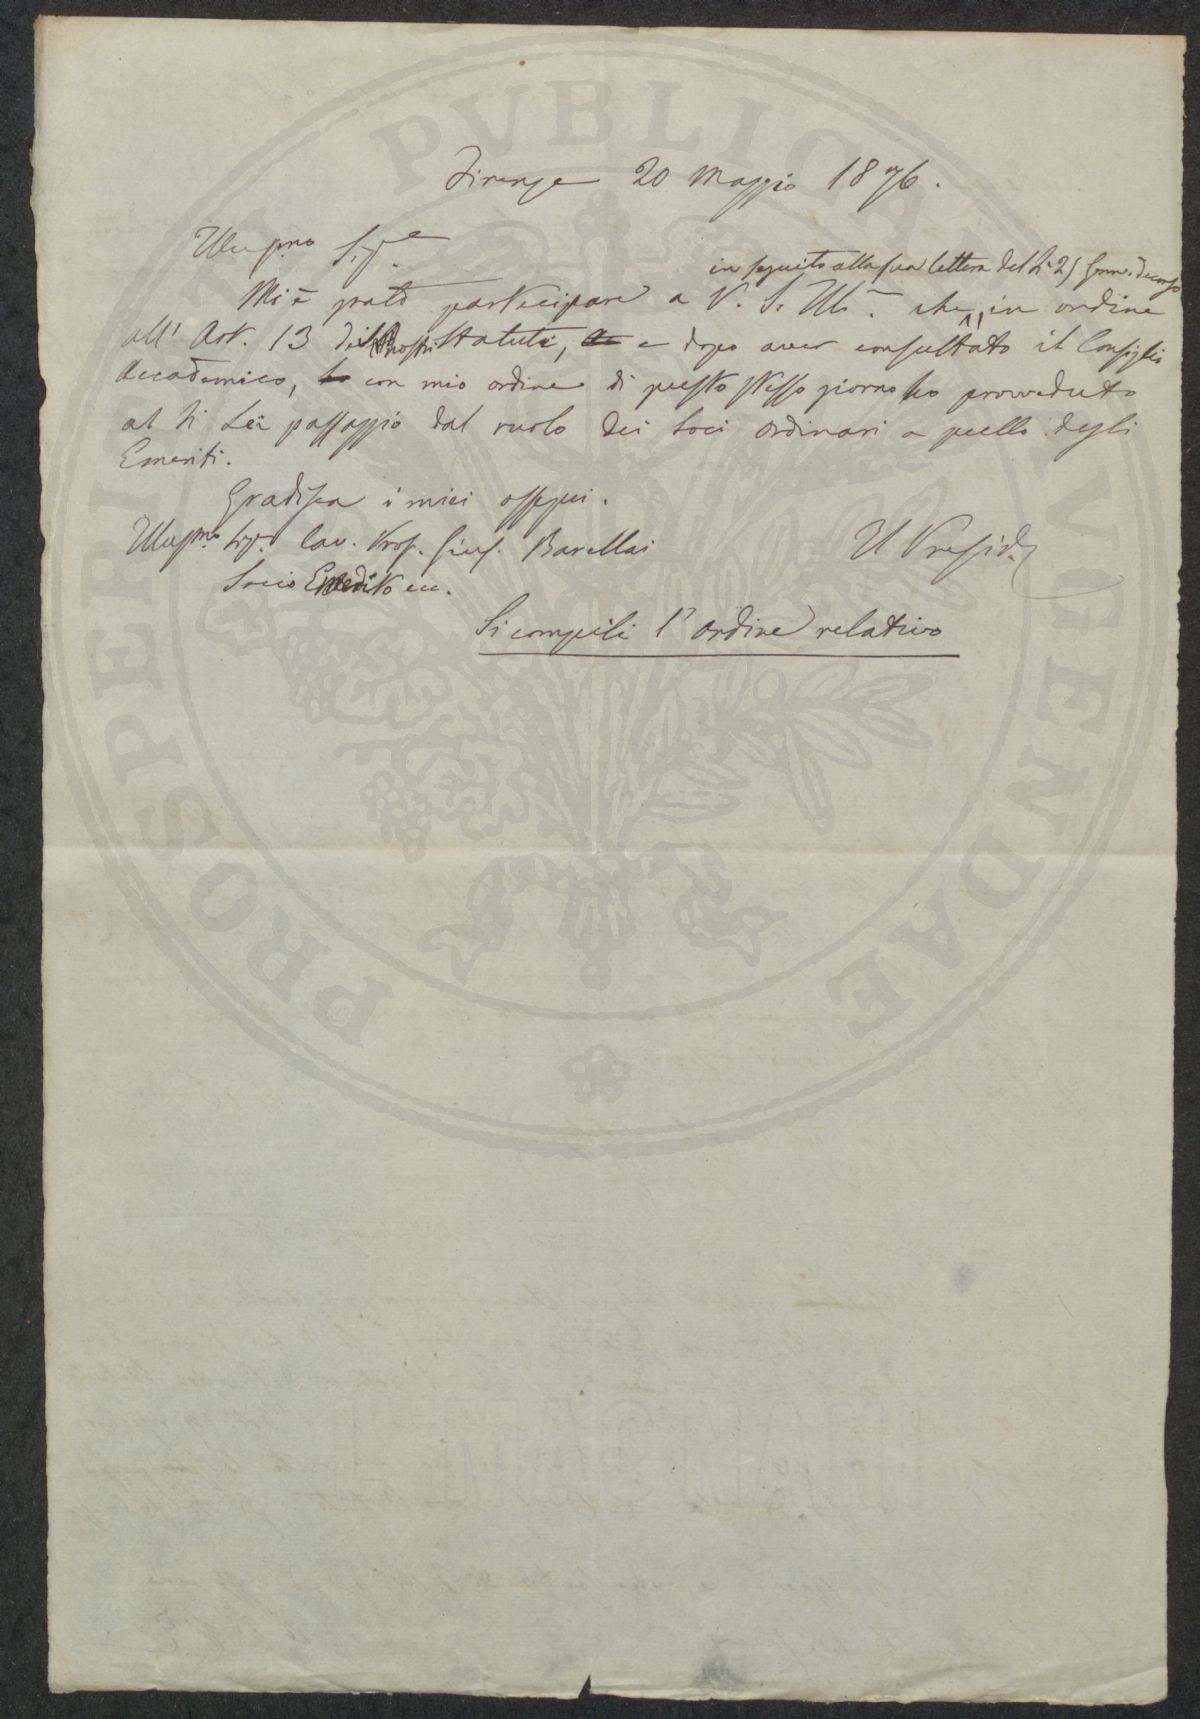 Firenze 20 Maggio 1876.
Illu.pmo Sig.re
in seguito alla sua lettera del dì 25 Genn. decorso
Mi è grato partecipare a V. S. Ill.ma che, in ordine
all' Art. 13 dei nostri Statuti, e dopo aver consultato il Consiglio
Accademico, con mio ordine di questo stesso giorno ho provveduto
al di Lei passaggio dal ruolo dei Soci Ordinari a quello degli
Emeriti.
Gradisca i miei ossequi.
Illu.pmo Sig. Cav. Prof. Gius. Barellai
Il Presid.
Socio Emerito ecc.
Si compili l'ordine relativo
PROSPERITATI PVBLICAE AVGENDAE